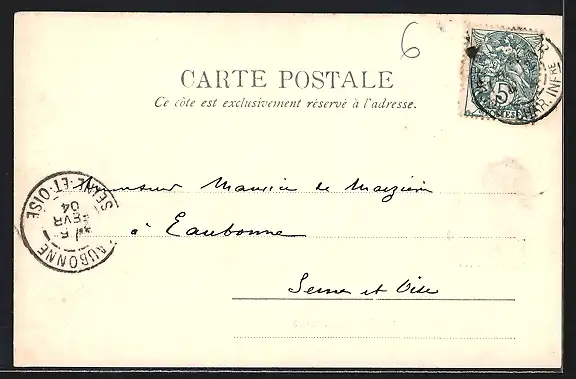 6
CARTE POSTALE
Ce côte est exclusivement réservé à l'adresse.
5
INFRE
Monsieur Maurice de Maizière
à Eaubonne
Seine et Oise
EAUBONNE
SEINE-ET-OISE
FEVR
04